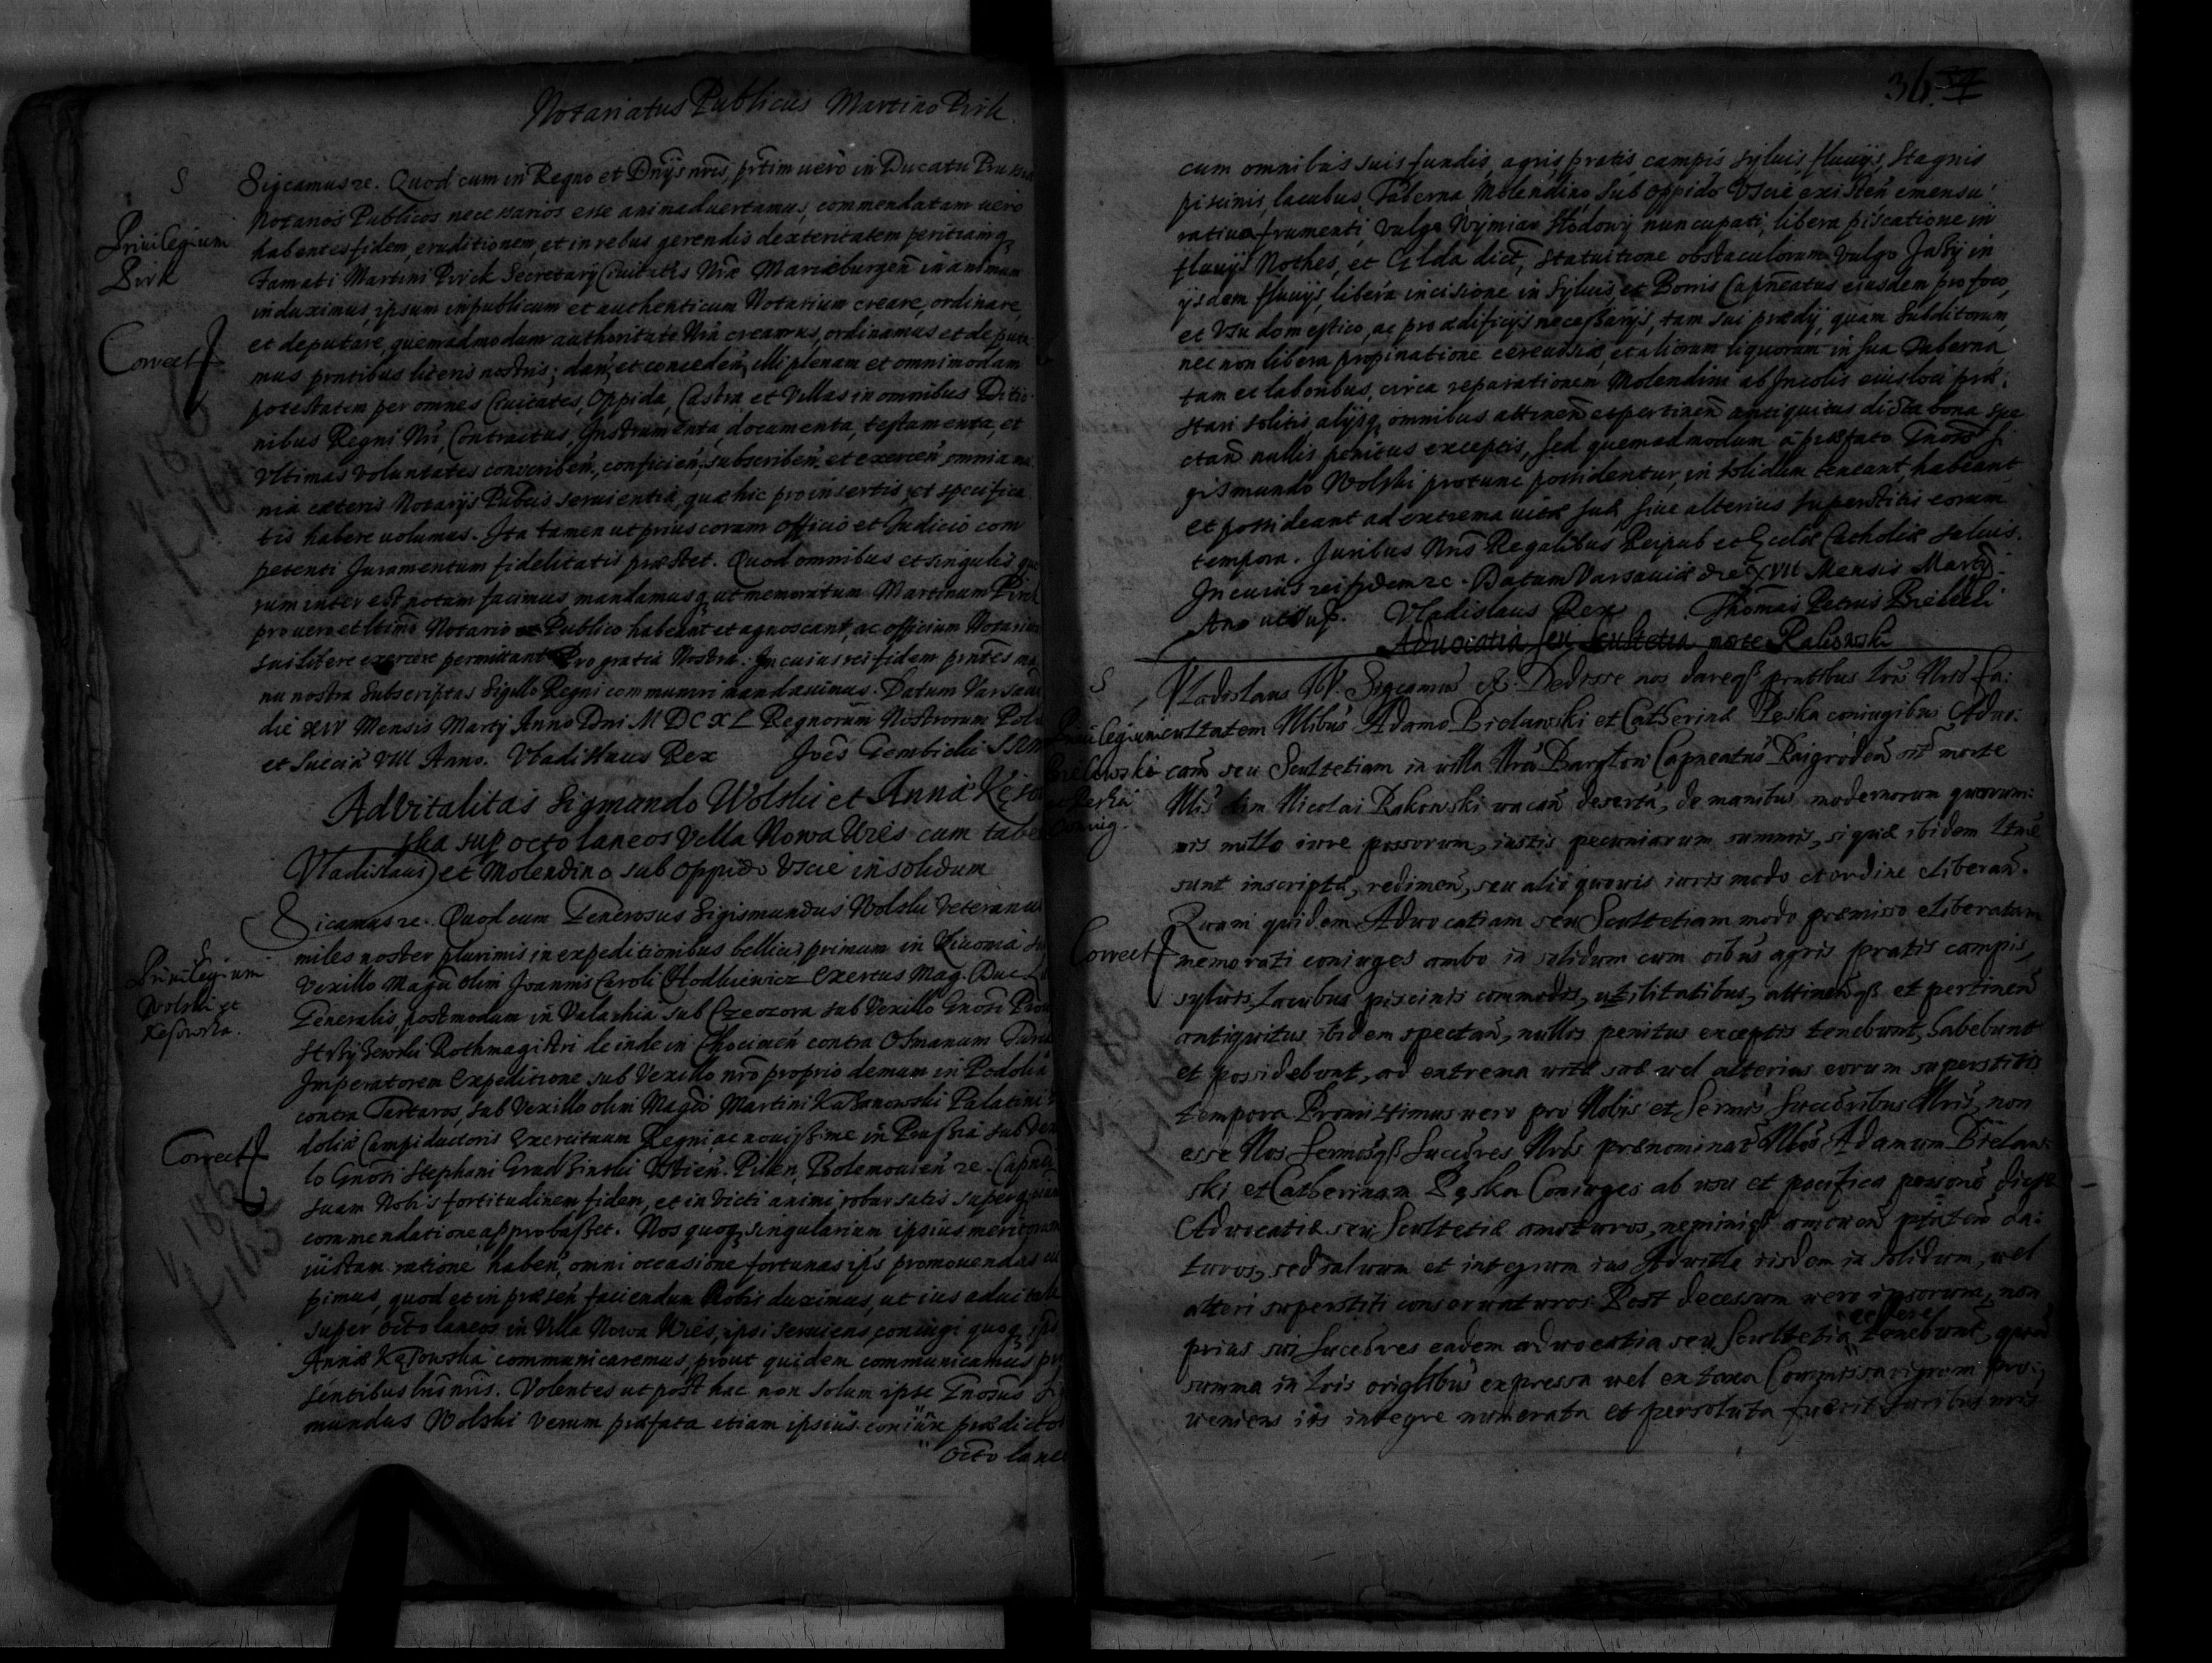 Notariatus Publicus Martino Pirk.
S
Sigcamus etc. Quod cum in Regno et Dnijs nris, prtim uero in Ducatu Prussia
Notarios Publicos necessarios esse animaduertamus, commendatam uero
Priuilegium
Pirk
habentes fidem, eruditionem, et in rebus gerendis dexteritatem peritiamq
Famati Martini Pirck Secretarij Ciuitatis Nrae Marieburgen in animum
induximus, ipsum in publicum et authenticum Notarium creare, ordinare,
Correct
et deputare, quemadmodum authoritate Nra creamus, ordinamus et deputa
mus prntibus literis nostris; dan, et conceden, illi plenam et omnimodam
potestatem per omnes Ciuitates, Oppida, Castra et Villas in omnibus Ditio
nibus Regni Nri, Contractus, Instrumenta, documenta, testamenta, et
Vltimas voluntates conscriben, conficien, subscriben, et exercen omnia
nia caeteris Notarijs Publcis seruientia, quae hic pro insertis et specifica
tis habere uolumus. Ita tamen ut prius coram Officio et Judicio com
petenti Juramentum fidelitatis praestet. Quod omnibus et singulis quo
rum interest notum facimus, mandamusq, ut memoratum Martinum Pirck
pro uero et ltimo Notario et Publico habeant et agnoscant, ac officium Notariat
sui libere exercere permittant Pro gratia Nostra. In cuius rei fidem prntes ma
nu nostra Subscriptas Sigillo Regni communiri mandauimus. Datum Varsauiae
die XIV Mensis Martij Anno Dni MDCXL Regnorum Nostrorum Polo
et Sueciae VIII Anno. Vladislaus Rex Joes Gembicki
Advitalitas Sigmundo Wolski et Annae Keso
ska sup octo laneos Villa Nowa Wies cum tabe
Vladislaus) et Molendino sub Oppido Vscie in solidum
Sigcamus etc. Quod cum Generosus Sigismundus Wolski Veteranus
S
Priuilegium
Wolski et
Kesowska.
miles noster plurimis in expeditionibus bellicis primum in Liuonia
Vexillo Magci olim Joannis Caroli Chodkiewicz Exercus Mag. Duc
Generalis, postmodum in Valachia sub Czeczora sub Vexillo Gnosi
Rothmagistri deinde in Chocimen contra Osmanum Turca
Imperatorem Expeditione sub Vexillo nro proprio demum in Podolia
contra Tartaros, sub Vexillo olim Magci Martini Kazanowski Palatini
Correct
doliae Campiductoris Exercituum Regni, ac nouissime in Prussia sub Vexi
lo Gnosi Stephani Grudzinski Vstien. Pilen, Bolemouien etc. Capnei
suam Nobis fortitudinem fidem, et inuicti animi robur satis superque
commendatione approbasset. Nos quoq singularium ipsius meritorum
iustam ratione haben, omni occasione fortunas ips promouendas cu
pimus, quod et in praesen faciendum Nobis duximus, ut ius aduitale
super octo laneos in Villa Nowa Wies, ipsi seruiens, coniugi quoq ips
Annae Kesowska communicaremus, prout quidem communicamus pr
sentibus lris nris. Volentes ut post hac non solum ipse Gnosus Si
mundus Wolski verum praefata etiam ipsius coniux praedictos
octo lane
36.
cum omnibus suis fundis, agris, pratis, campis syluis, fluuijs, stagnis
piscinis, lacubus, Taberna, Molendino sub Oppido Vscie existen emensu
ratiua frumenti vulgo Wymiar Stodowy nuncupati, libera piscatione in
fluuijs Nothes, et Glda dict, statuitione obstaculorum vulgo Jazy in
ijsdem fluuijs, libera incisione in Syluis, et Borris Capneatus eiusdem pro foco,
et Vsu domestico, ac pro aedificijs necessarijs, tam sui praedij, quam subditorum,
nec non libera propinatione cereuisiae, et aliorum liquorum in sua Taberna
tam et laboribus, circa reparationem Molendini ab Incolis eius loci prae
stari solitis, alijsq omnibus attinen et pertinen antiquitus dicta bona spe
ctan nullis penitus exceptis, sed quemadmodum a praefato Gnoso Si
gismundo Wolski pro tunc possidentur, in solidum teneant, habeant
et possideant ad extrema uitae suae siue alterius superstitis eorum
tempora. Juribus Nris Regalibus Reipub et Ecclae Catholicae saluis.
In cuius rei fidem etc. Datum Varsauiae die XVII Mensis Martij
Ano ut sup. Vladislaus Rex Thomas Petrus Bielecki
Aduocatia seu Scultetia morte Rakowski
S
Vladislaus IV. Sigcamus etc. Dedisse nos dareqs prntibus lris Nris fa:
Priuilegium
cultatem Nlibus Adamo Bielawski et Catherinae Peska coniugibus Aduo:
Bielawski
cam seu Scultetiam in villa Nra Bargłow Capneatus Raigroden sit morte
Peska
Nlis olim Nicolai Rakowski vacan deserta, de manibus modernorum quorum:
Coniug.
vis nullo iure possorum, iustis pecuniarum summis, si quae ibidem ltme
sunt inscripta, redimen, seu alio quouis iuris modo et ordine eliberan.
Quam quidem Advocatiam seu Scultetiam modo praemisso eliberatam
Correct
memorati coniuges ambo in solidum cum oibus agris pratis campis,
syluis, lacubus piscinis commodis, utilitatibus, attinenqs et pertinen
antiquitus ibidem spectan, nullis penitus exceptis tenebunt, habebunt
et possidebunt, ad extrema vitae suae vel alterius eorum superstitis
tempora Promittimus vero pro Nobis et Sermis Succoribus Nris, non
esse Nos Sermosqs Succores Nros praenominat Nles Adamum Bielaw:
ski et Catherinam Pęska Coniuges ab usu et pacifica possione dictae
Advocatiae seu Scultetiae amoturos, neminiqs amouen ptatem da:
turos, sed saluum et integrum ius Advitle iisdem in solidum, vel
alteri superstiti conseruaturos. Post decessum vero ipsorum, non
cedere
prius sui Succores eadem advocatia seu Scultetia tenebunt, quam
summa in lris origlibus expressa vel ex taxa Commissariorum pro:
ueniens iis integre numerata et persoluta fuerit Juribus nris